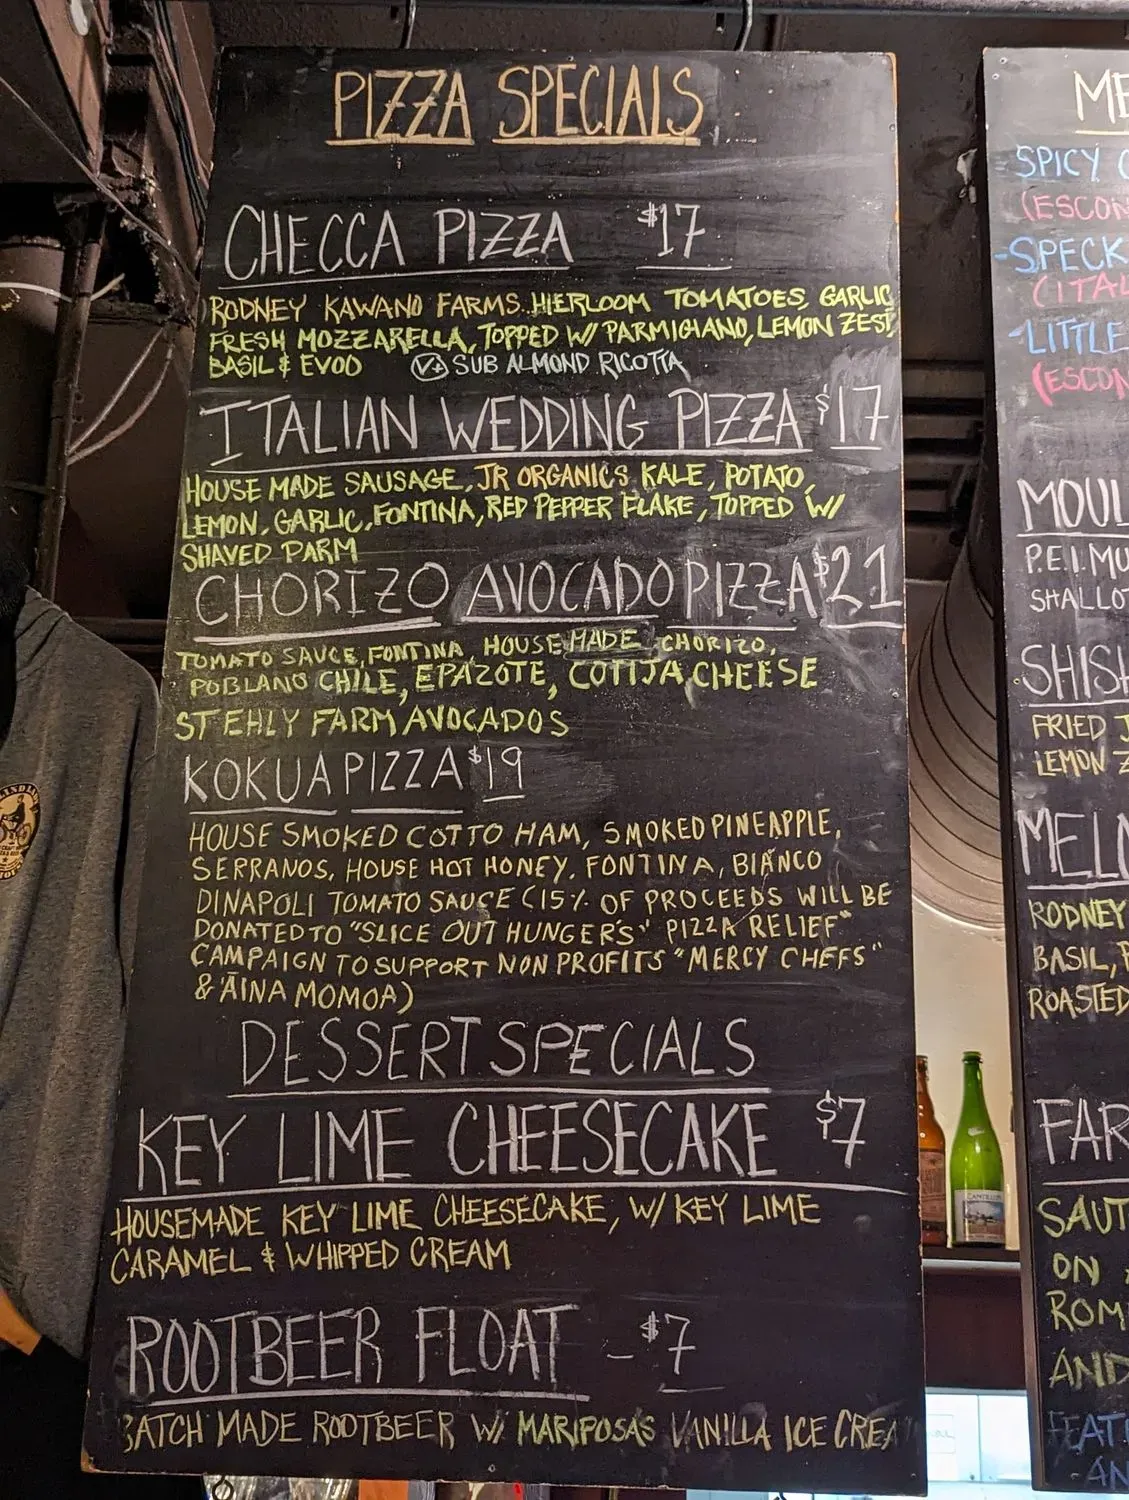 PIZZA SPECIALS
CHECCA PIZZA $17
RODNEY KAWANO FARMS HIERLOOM TOMATOES, GARLIC
FRESH MOZZARELLA, TOPPED W/ PARMIGIANO, LEMON ZEST,
BASIL & EVOO V+ SUB ALMOND RICOTTA
ITALIAN WEDDING PIZZA $17
HOUSE MADE SAUSAGE, JR ORGANICS KALE, POTATO,
LEMON, GARLIC, FONTINA, RED PEPPER FLAKE, TOPPED W/
SHAVED PARM
CHORIZO AVOCADO PIZZA $21
TOMATO SAUCE, FONTINA, HOUSE MADE CHORIZO,
POBLANO CHILE, EPAZOTE, COTIJA CHEESE
STEHLY FARM AVOCADOS
KOKUA PIZZA $19
HOUSE SMOKED COTTO HAM, SMOKED PINEAPPLE,
SERRANOS, HOUSE HOT HONEY, FONTINA, BIANCO
DINAPOLI TOMATO SAUCE (15% OF PROCEEDS WILL BE
DONATED TO "SLICE OUT HUNGER'S" PIZZA RELIEF"
CAMPAIGN TO SUPPORT NON PROFITS "MERCY CHEFS"
& 'ĀINA MOMOA)
DESSERT SPECIALS
KEY LIME CHEESECAKE $7
HOUSEMADE KEY LIME CHEESECAKE, W/ KEY LIME
CARAMEL & WHIPPED CREAM
ROOTBEER FLOAT - $7
BATCH MADE ROOTBEER W/ MARIPOSAS VANILLA ICE CREA
ME
SPICY
(ESCON
-SPECK
(ITAL
-LITTLE
(ESCON
MOUL
P.E.I. MU
SHALLOT
SHISH
FRIED J
LEMON Z
MELO
RODNEY
BASIL, P
ROASTED
FAR
SAUT
ON
ROM
AND
FEAT
AN